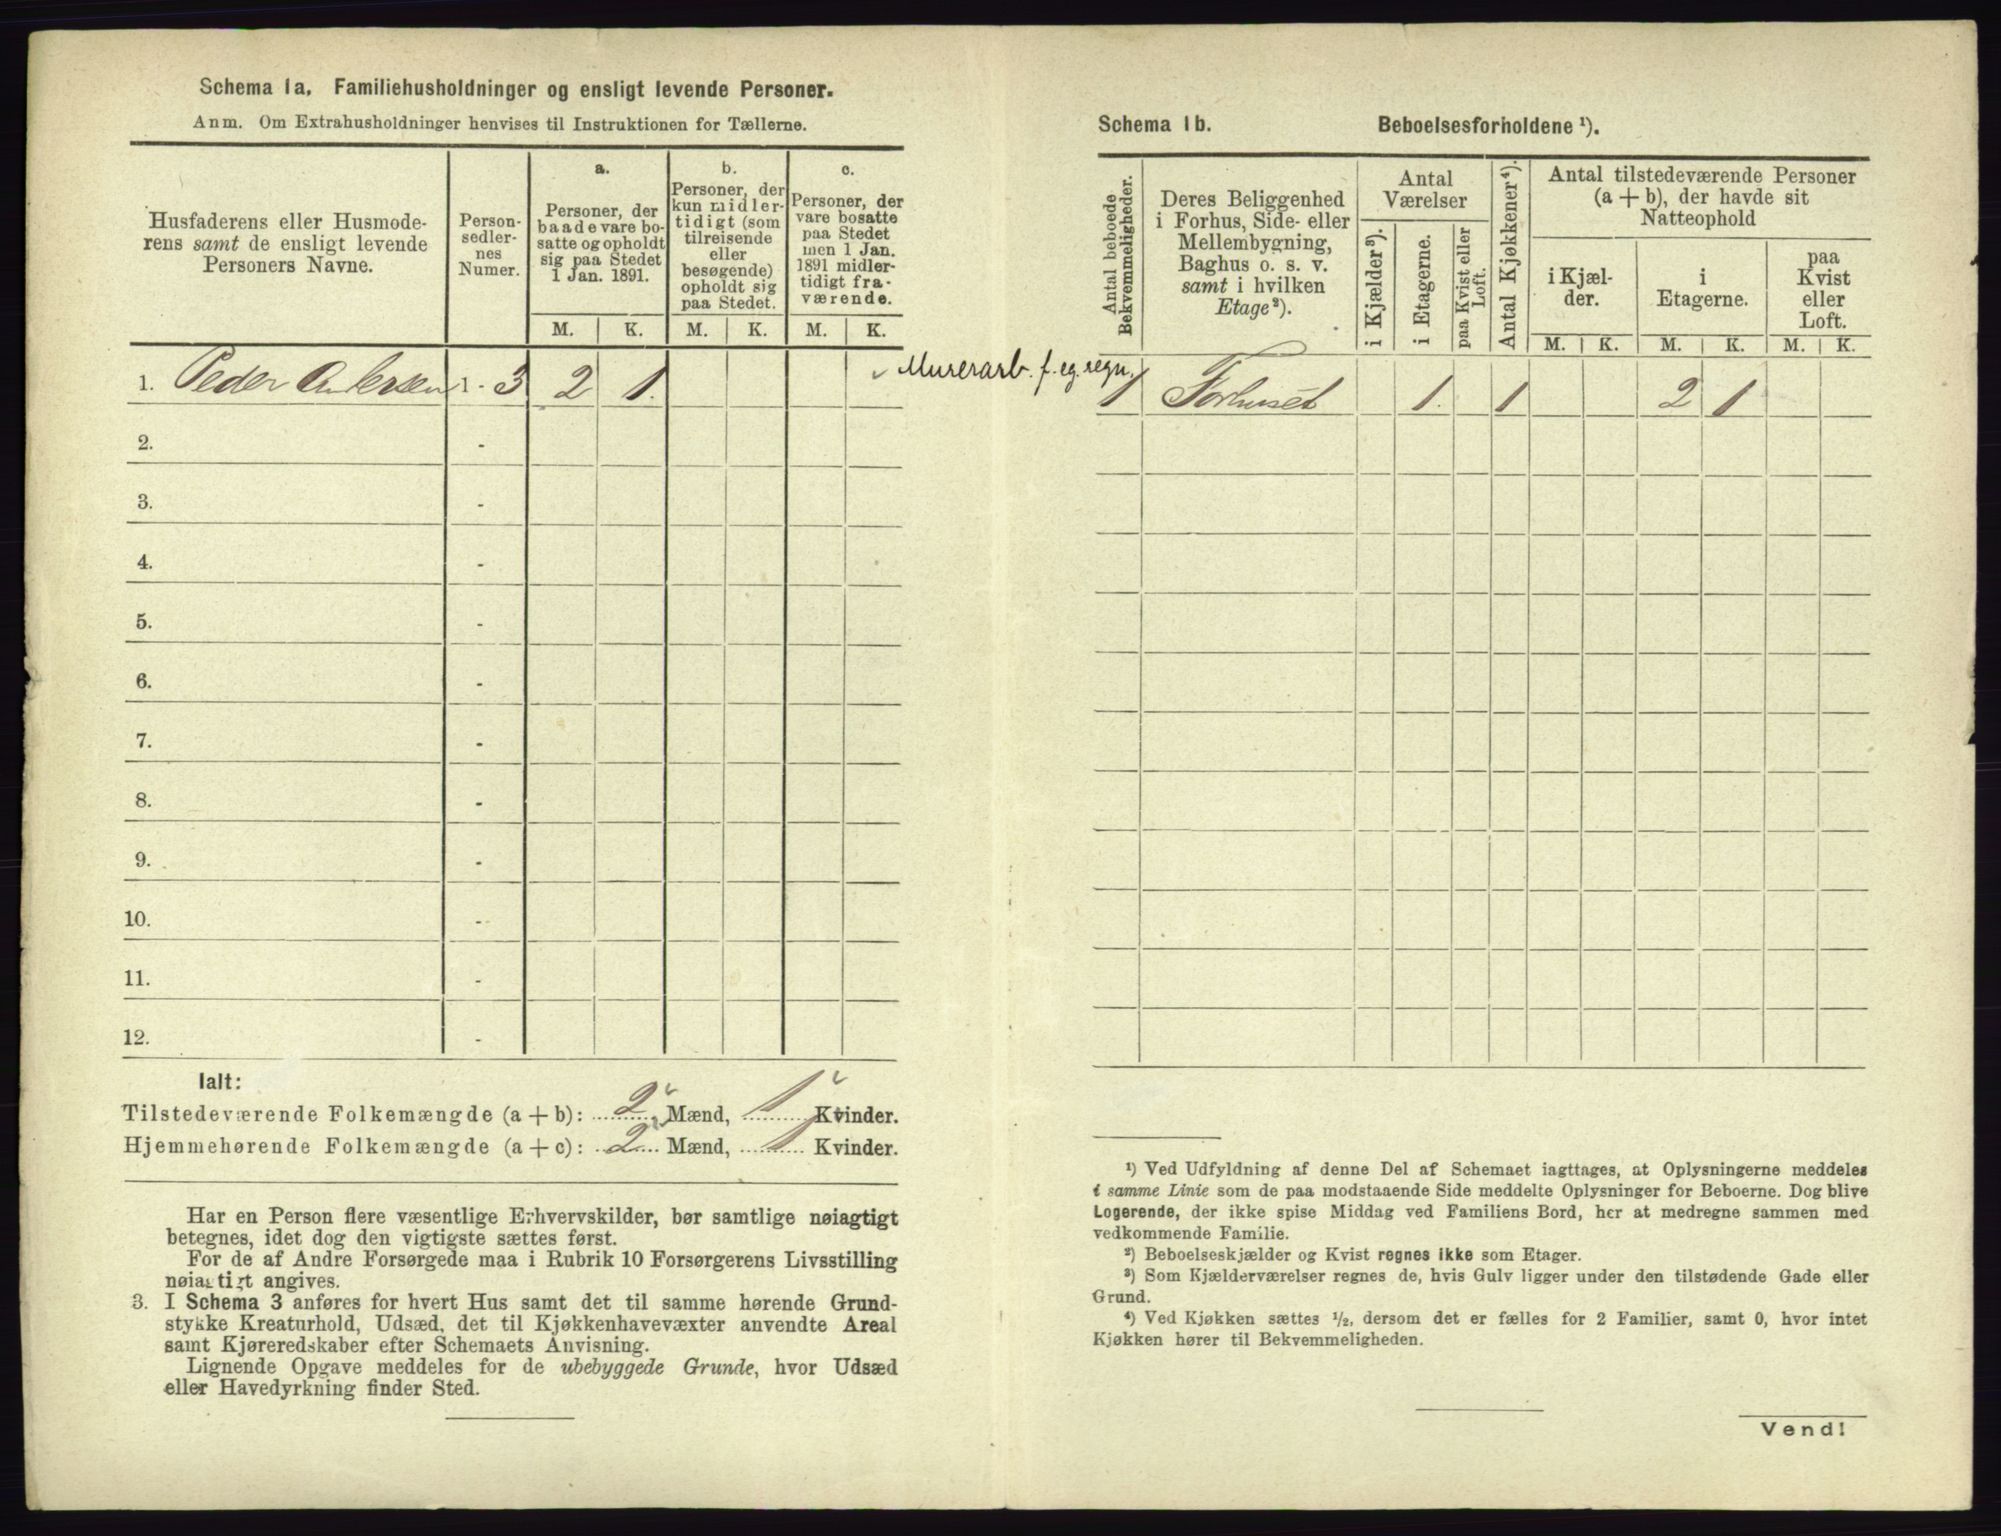 Schema 1a. Familiehusholdninger og ensligt levende Personer.
Anm. Om Extrahusholdninger henvises til Instruktionen for Tællerne.
Husfaderens eller Husmode-
rens samt de ensligt levende
Personers Navne.
Person-
sedler-
nes
Numer.
a.
Personer, der
baade vare bo-
satte og opholdt
sig paa Stedet
1 Jan. 1891.
M. K.
b.
Personer, der
kun midler-
tidigt (som
tilreisende
eller
besøgende)
opholdt sig
paa Stedet.
M. K.
c.
Personer, der
vare bosatte
paa Stedet
men 1 Jan.
1891 midler-
tidigt fra-
værende.
M. K.
1. Peder Andersen 1 - 3 2 1.
2. -
3. -
4. -
5. -
6. -
7. -
8. -
9. -
10. -
11. -
12. -
Ialt:
Tilstedeværende Folkemængde (a + b): 2 Mænd, 1 Kvinder.
Hjemmehørende Folkemængde (a + c): 2 Mænd, 1 Kvinder.
Har en Person flere væsentlige Erhvervskilder, bør samtlige nøiagtigt
betegnes, idet dog den vigtigste sættes først.
For de af Andre Forsørgede maa i Rubrik 10 Forsørgerens Livsstilling
nøiagtigt angives.
3. I Schema 3 anføres for hvert Hus samt det til samme hørende Grund-
stykke Kreaturhold, Udsæd, det til Kjøkkenhavevæxter anvendte Areal
samt Kjøreredskaber efter Schemaets Anvisning.
Lignende Opgave meddeles for de ubebyggede Grunde, hvor Udsæd
eller Havedyrkning finder Sted.
Schema 1b. Beboelsesforholdene ¹).
Antal beboede
Bekvemmeligheder.
Deres Beliggenhed
i Forhus, Side- eller
Mellembygning,
Baghus o. s. v.
samt i hvilken
Etage²).
Antal
Værelser
i Kjælder³).
i Etagerne.
paa Kvist eller
Loft.
Antal Kjøkkener⁴).
Antal tilstedeværende Personer
(a + b), der havde sit
Natteophold
i Kjæl-
der.
i
Etagerne.
paa
Kvist
eller
Loft.
M. K. M. K. M. K.
Murerarb. f. eg. regn.
1 Forhuset 1. 1 2 1
¹) Ved Udfyldning af denne Del af Schemaet iagttages, at Oplysningerne meddeles
i samme Linie som de paa modstaaende Side meddelte Oplysninger for Beboerne. Dog blive
Logerende, der ikke spise Middag ved Familiens Bord, her at medregne sammen med
vedkommende Familie.
²) Beboelseskjælder og Kvist regnes ikke som Etager.
³) Som Kjælderværelser regnes de, hvis Gulv ligger under den tilstødende Gade eller
Grund.
⁴) Ved Kjøkken sættes ½, dersom det er fælles for 2 Familier, samt 0, hvor intet
Kjøkken hører til Bekvemmeligheden.
Vend!